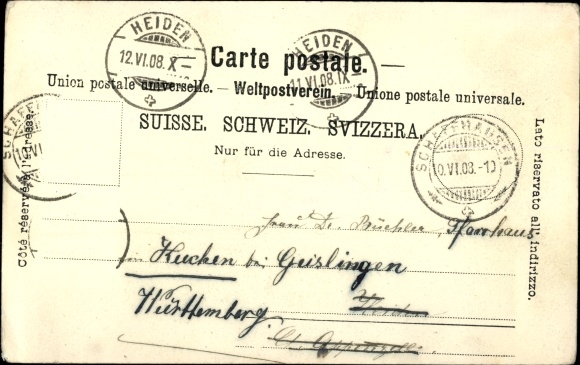 HEIDEN
12.VI.08.X
HEIDEN
11.VI.08.IX
Carte postale.
Union postale universelle. — Weltpostverein. — Unione postale universale.
SUISSE. SCHWEIZ. SVIZZERA.
Nur für die Adresse.
Côté réservé à l'adresse.
Lato riservato all'indirizzo.
SCHAFFHAUSEN
10.VI.08.-10
SCHAFF
VI
Frau Dr. Büchler, Pfarrhaus
in Kuchen bei Geislingen
Württemberg.
Heiden
Ct. Appenzell